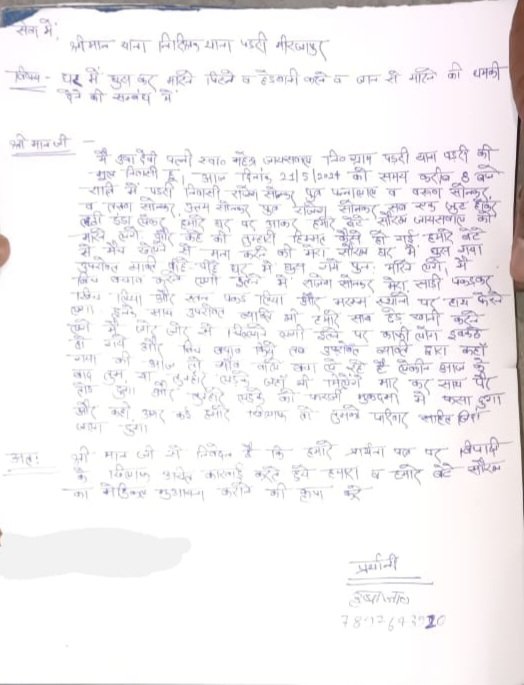 सेवा में,
श्रीमान थाना निरिक्षक थाना पडरी मीरजापुर
विषय - घर में घुस कर मारने पिटने व छेडखानी करने व जान से मारने की धमकी
देने की सम्बंध में
श्री मान जी -
मैं देवी पत्नी स्व० महेन्द्र जायसवाल नि० ग्राम पडरी थाना पडरी की
मूल निवासी हूँ। आज दिनांक 21/5/2024 को समय करीब 8 बजे
रात्रि में पडरी निवासी राजेश सोनकर पुत्र पन्नालाल व वरुण सोनकर
व सोनकर, सोनकर पुत्र राजेश सोनकर सब एक जुट होकर
लाठी डंडा लेकर हमारे घर पर आकर हमारे बेटे सौरभ जायसवाल को
मारने लगे और कहे की तुम्हारी हिम्मत कैसे हो गई हमारे बेटे
से करने की मेरा सौरभ घर में घुस गया
उपरोक्त व्यक्ति घर में घुस गये पुनः मारने लगे। मैं
बिच बचाव करने लगी इतने में राजेश सोनकर मेरा साड़ी पकडकर
खिच लिया और पकड लिया और स्थानो पर हाथ फेरने
लगा। साथ उपरोक्त व्यक्ति भी हमारे साथ छेड खानी करने
लगे मैं जोर जोर से चिल्लाने लगी इतने पर काफी लोग इकठ्ठा
हो गये और बिच बचाव किये तब उपरोक्त व्यक्ति द्वारा कहा
गया की आज तो गाँव वाले बचा ले रहे है लेकिन आज के
बाद तुम या तुम्हारे लडके जहाँ भी मिलेंगे मार कर हाथ पैर
तोड दुंगा और तुम्हारे लडके को फरजी मुकदमा में फसा दुंगा
और कहा अगर हमारे खिलाफ तो तुमको परिवार सहित जिन्दा
जला दुंगा।
अतः श्री मान जी से निवेदन है कि हमारे प्रार्थना पत्र पर विपक्षी
के खिलाफ उचित कारवाई करते हुये हमारा व हमारे बेटे सौरभ
का मेडिकल मुआयना कराने की कृपा करे
प्रार्थीनी